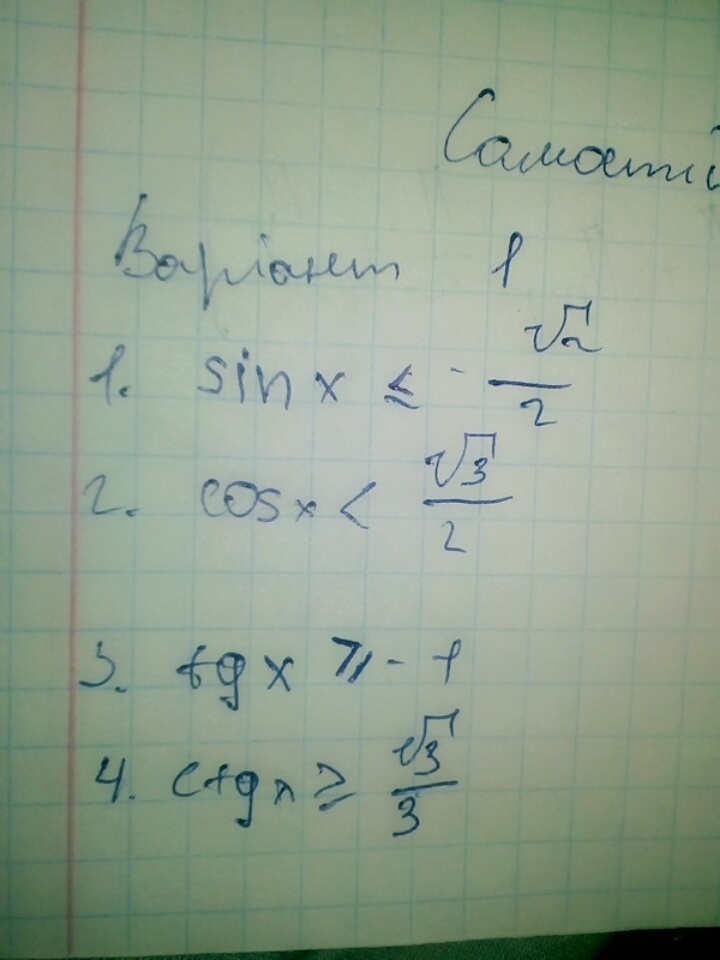 Самостій
Варіант 1
1. sin x ≤ - √2/2
2. cos x < √3/2
3. tg x ⩾ - 1
4. ctg x ≥ √3/3